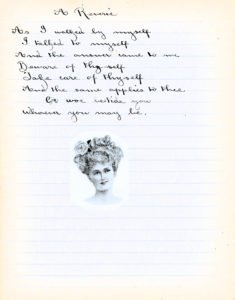 A Reverie
As I walked by myself
I talked to myself
And the answer came to me
Beware of thyself
Take care of thyself
And the same applies to thee
Or woe betide you
Whoever you may be.